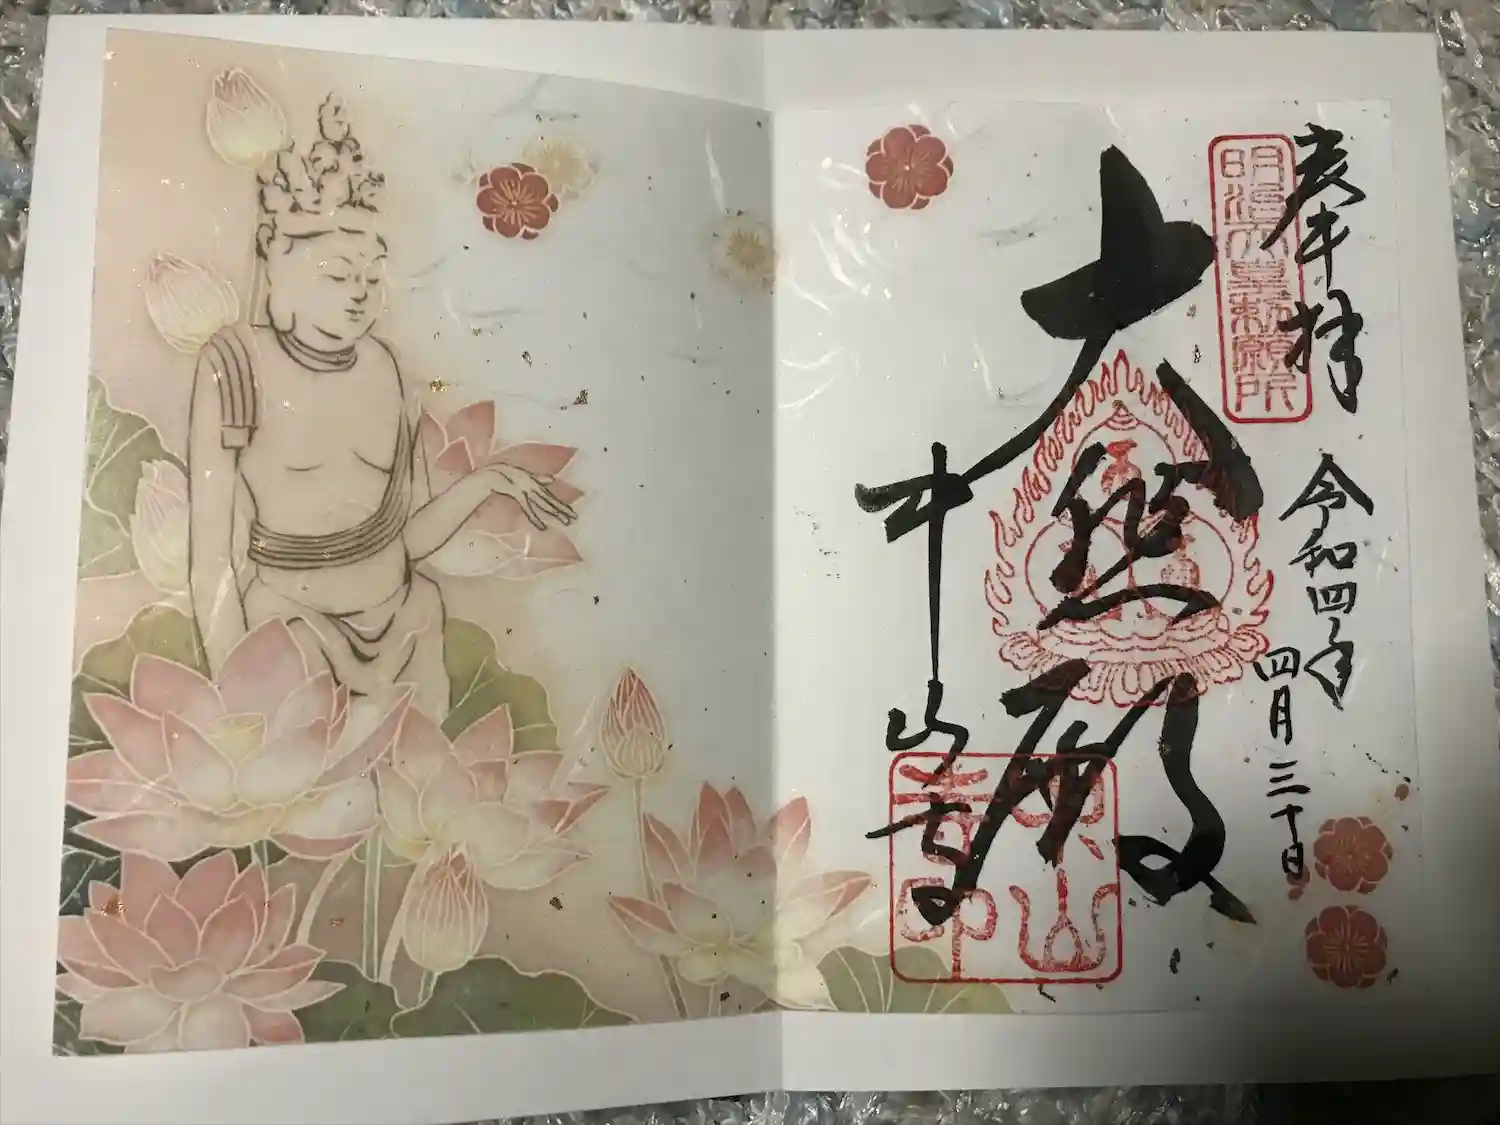 奉拝 令和四年
四月三十日
明治天皇勅願所
大悲殿
中山寺
中山
寺印